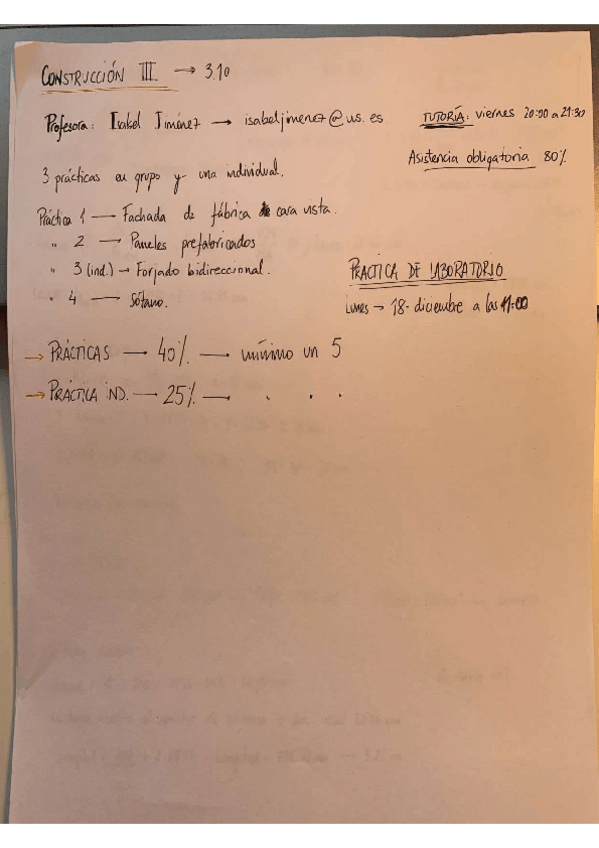 CONSTRUCCIÓN III. → 3.10
Profesora: Isabel Jiménez → isabeljimenez@us.es
TUTORÍA: viernes 20:00 a 21:30
Asistencia obligatoria 80%
3 prácticas en grupo y una individual.
Práctica 1 — Fachada de fábrica cara vista.
" 2 → Paneles prefabricados
" 3 (ind.) → Forjado bidireccional.
" 4 — Sótano.
PRÁCTICA DE LABORATORIO
Lunes → 18 diciembre a las 11:00
→ PRÁCTICAS — 40% — mínimo un 5
→ PRÁCTICA IND. — 25% — . . .